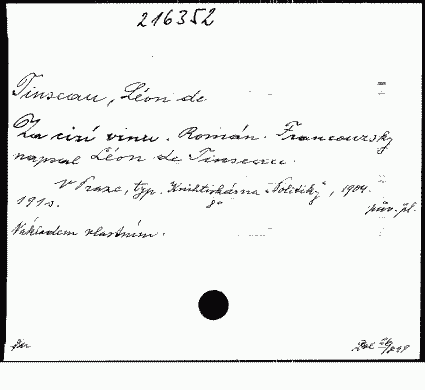 216352
Tinseau, Léon de
Za cizí vinu. Román. Francouzsky
napsal Léon de Tinseau.
V Praze, typ. Knihtiskárna "Politiky", 1904.
191 s. 8° pův. pl.
Nákladem vlastním.